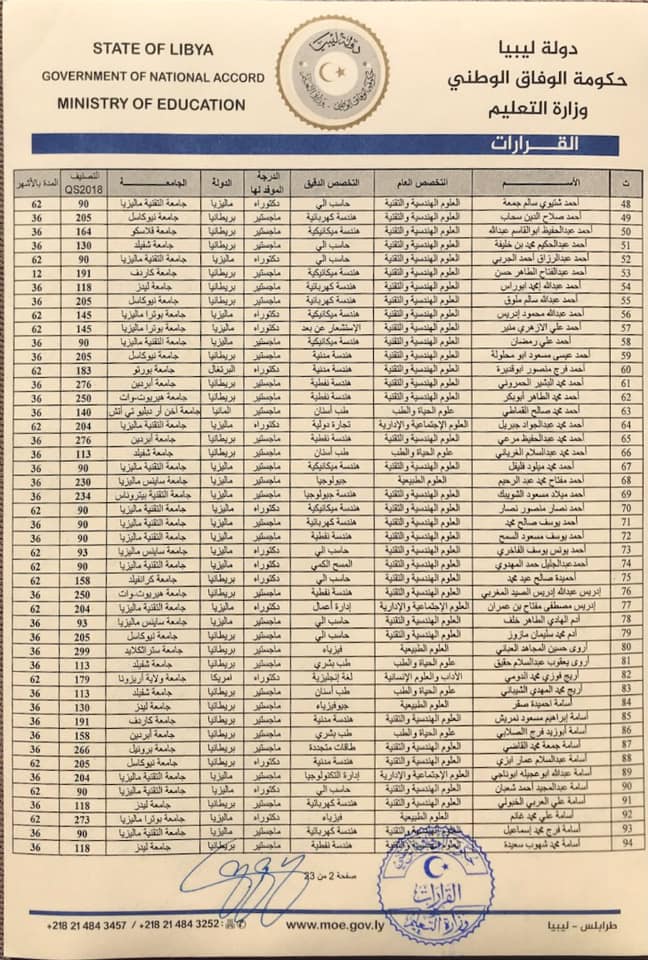 STATE OF LIBYA
GOVERNMENT OF NATIONAL ACCORD
MINISTRY OF EDUCATION
دولة ليبيا
حكومة الوفاق الوطني
وزارة التعليم
القـــرارات
ت الأســـم التخصص العام التخصص الدقيق الدرجة الموفد لها الدولة الجامعـــة التصنيف QS2018 المدة بالأشهر
48 أحمد شتيوي سالم جمعة العلوم الهندسية والتقنية حاسب الي دكتوراه ماليزيا جامعة التقنية ماليزيا 90 62
49 أحمد صلاح الدين سحاب العلوم الهندسية والتقنية هندسة كهربائية ماجستير بريطانيا جامعة نيوكاسل 205 36
50 أحمد عبدالحفيظ ابوالقاسم عبدالله العلوم الهندسية والتقنية هندسة ميكانيكية ماجستير بريطانيا جامعة قلاسكو 164 36
51 أحمد عبدالحكيم محمد بن خليفة العلوم الهندسية والتقنية حاسب الي ماجستير بريطانيا جامعة شفيلد 130 36
52 أحمد عبدالرزاق أحمد الجربي العلوم الهندسية والتقنية حاسب الي دكتوراه ماليزيا جامعة التقنية ماليزيا 90 62
53 أحمد عبدالفتاح الطاهر حسن العلوم الهندسية والتقنية هندسة ميكانيكية ماجستير بريطانيا جامعة كاردف 191 12
54 أحمد عبدالله امحمد ابوراس العلوم الهندسية والتقنية هندسة كهربائية ماجستير بريطانيا جامعة ليدز 118 36
55 أحمد عبدالله سالم ملوق العلوم الهندسية والتقنية هندسة كهربائية ماجستير بريطانيا جامعة نيوكاسل 205 36
56 أحمد عبدالله محمود إدريس العلوم الهندسية والتقنية هندسة ميكانيكية دكتوراه ماليزيا جامعة بوترا ماليزيا 145 62
57 أحمد علي الازهري منير العلوم الهندسية والتقنية الإستشعار عن بعد دكتوراه ماليزيا جامعة بوترا ماليزيا 145 62
58 أحمد علي رمضان العلوم الهندسية والتقنية هندسة ميكانيكية ماجستير ماليزيا جامعة التقنية ماليزيا 90 36
59 أحمد عيسى مسعود ابو محلولة العلوم الهندسية والتقنية هندسة مدنية ماجستير بريطانيا جامعة نيوكاسل 205 36
60 أحمد فرج منصور ابوقديرة العلوم الهندسية والتقنية هندسة مدنية دكتوراه البرتغال جامعة بورتو 183 62
61 أحمد محمد البشير الحمروني العلوم الهندسية والتقنية هندسة نفطية ماجستير بريطانيا جامعة أبردين 276 36
62 أحمد محمد الطاهر أبوبكر العلوم الهندسية والتقنية هندسة نفطية ماجستير بريطانيا جامعة هيريوت-وات 250 36
63 أحمد محمد صالح القماطي علوم الحياة والطب طب أسنان ماجستير المانيا جامعة أخن أر دبليو تي أتش 140 36
64 أحمد محمد عبدالجواد جبريل العلوم الإجتماعية والإدارية تجارة دولية دكتوراه ماليزيا جامعة التقنية ماليزيا 204 62
65 أحمد محمد عبدالحفيظ مرعي العلوم الهندسية والتقنية هندسة نفطية ماجستير بريطانيا جامعة أبردين 276 36
66 أحمد محمد عبدالسلام الغرياني علوم الحياة والطب طب أسنان ماجستير بريطانيا جامعة شفيلد 113 36
67 أحمد محمد ميلود فليفل العلوم الهندسية والتقنية هندسة ميكانيكية ماجستير ماليزيا جامعة التقنية ماليزيا 90 36
68 أحمد مفتاح محمد عبد الرحيم العلوم الطبيعية جيولوجيا ماجستير ماليزيا جامعة ساينس ماليزيا 230 36
69 أحمد ميلاد مسعود الشويبك العلوم الهندسية والتقنية هندسة جيولوجيا ماجستير ماليزيا جامعة التقنية بيتروناس 234 36
70 أحمد نصار منصور نصار العلوم الهندسية والتقنية هندسة ميكانيكية دكتوراه ماليزيا جامعة التقنية ماليزيا 90 62
71 أحمد يوسف صالح محمد العلوم الهندسية والتقنية هندسة كهربائية ماجستير ماليزيا جامعة التقنية ماليزيا 90 36
72 أحمد يوسف مسعود السمح العلوم الهندسية والتقنية هندسة نفطية ماجستير ماليزيا جامعة التقنية ماليزيا 90 36
73 أحمد يونس يوسف الفاخري العلوم الهندسية والتقنية حاسب الي دكتوراه ماليزيا جامعة ساينس ماليزيا 93 62
74 أحمدعبدالجليل حمد المهدوي العلوم الهندسية والتقنية المسح الكمي دكتوراه ماليزيا جامعة التقنية ماليزيا 90 62
75 أحميدة صالح عبد محمد العلوم الهندسية والتقنية حاسب الي دكتوراه بريطانيا جامعة كرانفيلد 158 62
76 إدريس عبدالله إدريس الصيد المغربي العلوم الهندسية والتقنية هندسة نفطية ماجستير بريطانيا جامعة هيريوت-وات 250 36
77 إدريس مصطفى مفتاح بن عمران العلوم الإجتماعية والإدارية إدارة أعمال دكتوراه ماليزيا جامعة التقنية ماليزيا 204 62
78 أدم الهادي الطاهر خلف العلوم الهندسية والتقنية حاسب الي ماجستير ماليزيا جامعة ساينس ماليزيا 93 36
79 أدم محمد سليمان مازوز العلوم الهندسية والتقنية حاسب الي ماجستير بريطانيا جامعة نيوكاسل 205 36
80 أروى حسين المجاهد العباني العلوم الطبيعية فيزياء ماجستير بريطانيا جامعة ستراثكلايد 299 36
81 أروى يعقوب عبدالسلام حقيق علوم الحياة والطب طب بشري ماجستير بريطانيا جامعة شفيلد 113 36
82 أريج فوزي محمد الدومي الأداب والعلوم الإنسانية لغة إنجليزية دكتوراه امريكا جامعة ولاية أريزونا 179 62
83 أريج محمد المهدي الشيباني علوم الحياة والطب طب أسنان ماجستير بريطانيا جامعة شفيلد 113 36
84 أسامة احميدة صقر العلوم الطبيعية جيوفيزياء ماجستير بريطانيا جامعة ليدز 130 36
85 أسامة إبراهيم مسعود نمريش العلوم الهندسية والتقنية هندسة مدنية ماجستير بريطانيا جامعة كاردف 191 36
86 أسامة أبوزيد فرج الصلابي علوم الحياة والطب طب بشري ماجستير بريطانيا جامعة أبردين 158 36
87 أسامة جمعة محمد القاضي العلوم الهندسية والتقنية طاقات متجددة ماجستير بريطانيا جامعة برونيل 266 36
88 أسامة عبدالسلام عمار ابزي العلوم الهندسية والتقنية هندسة مدنية دكتوراه بريطانيا جامعة نيوكاسل 205 62
89 أسامة عبدالله ابوعجيله ابوناجي العلوم الإجتماعية والإدارية إدارة التكنولوجيا ماجستير ماليزيا جامعة التقنية ماليزيا 204 36
90 أسامة عبدالمجيد أحمد شعبان العلوم الهندسية والتقنية حاسب الي دكتوراه ماليزيا جامعة التقنية ماليزيا 90 62
91 أسامة علي العربي الخبولي العلوم الهندسية والتقنية هندسة كهربائية ماجستير بريطانيا جامعة ليدز 118 36
92 أسامة علي محمد غانم العلوم الطبيعية فيزياء دكتوراه ماليزيا جامعة بوترا ماليزيا 273 62
93 أسامة فرج محمد إسماعيل العلوم الهندسية والتقنية هندسة كهربائية ماجستير ماليزيا جامعة التقنية ماليزيا 90 36
94 أسامة محمد شهوب سعيدة هندسة نفطية ماجستير بريطانيا جامعة ليدز 118 36
صفحة 2 من 23
القرارات
وزارة التعليم
+218 21 484 3457 / +218 21 484 3252 :
www.moe.gov.ly
طرابلس - ليبيا